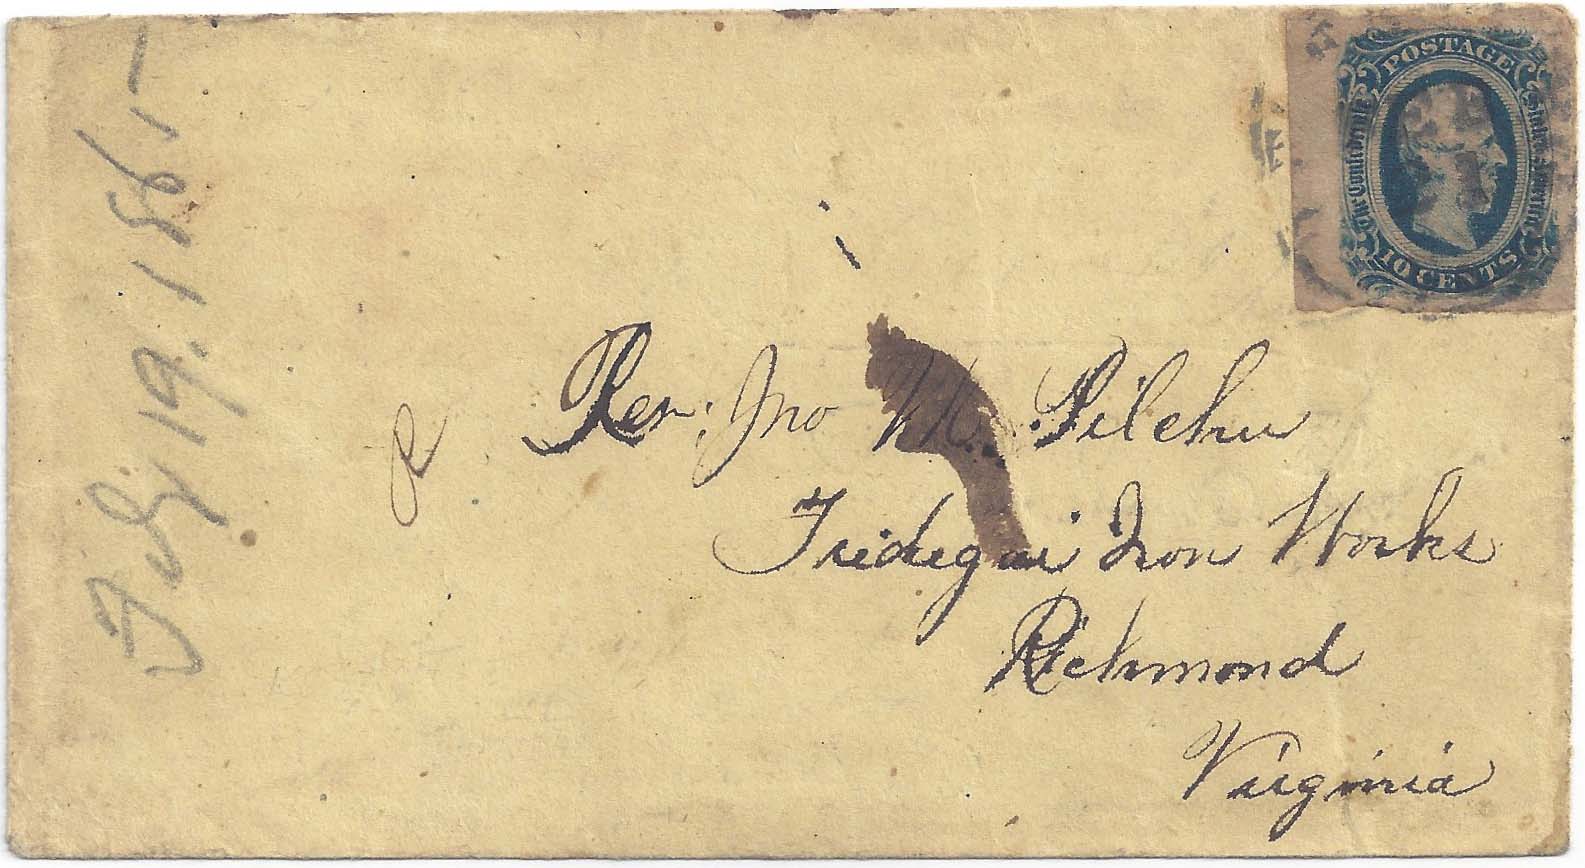 POSTAGE
The Confederate States of America
10 CENTS
Feby 19. 1865
Rev. Jno W. Pilcher
Tredegar Iron Works
Richmond
Virginia